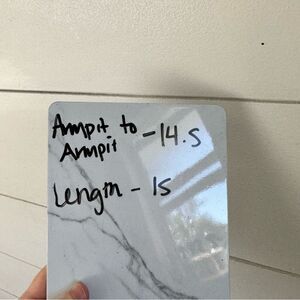 Armpit to -14.5
Armpit
Length - 15